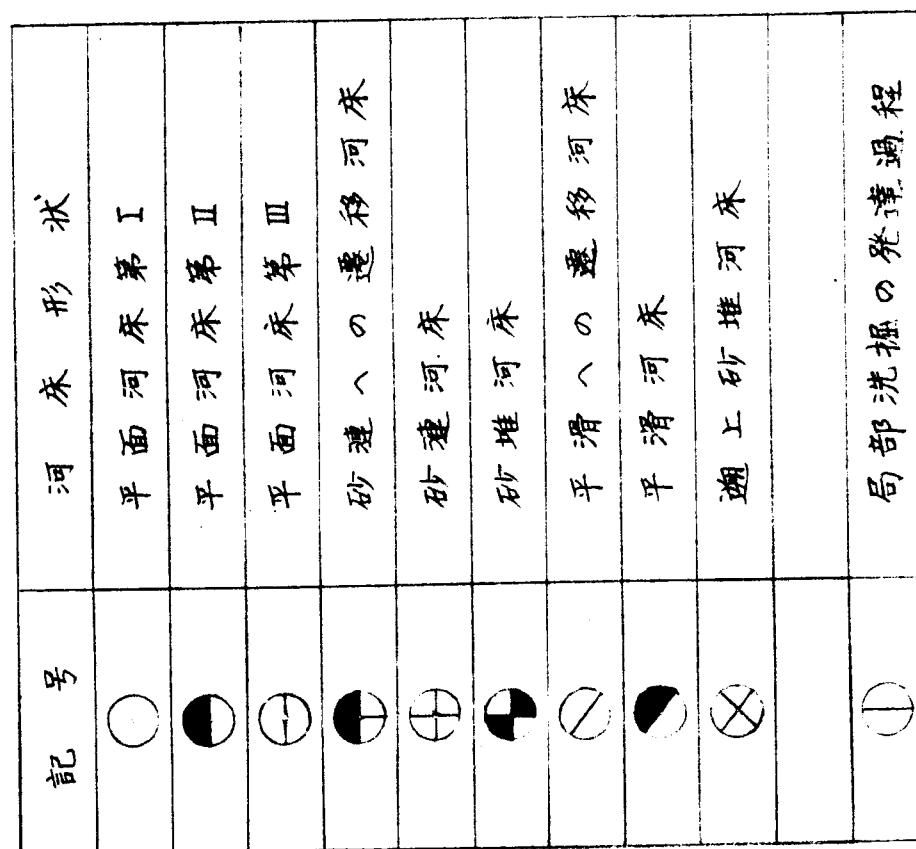 記号 河床形状
平面河床第I
平面河床第II
平面河床第III
砂漣への遷移河床
砂漣河床
砂堆河床
平滑への遷移河床
平滑河床
遡上砂堆河床
局部洗掘の発達過程